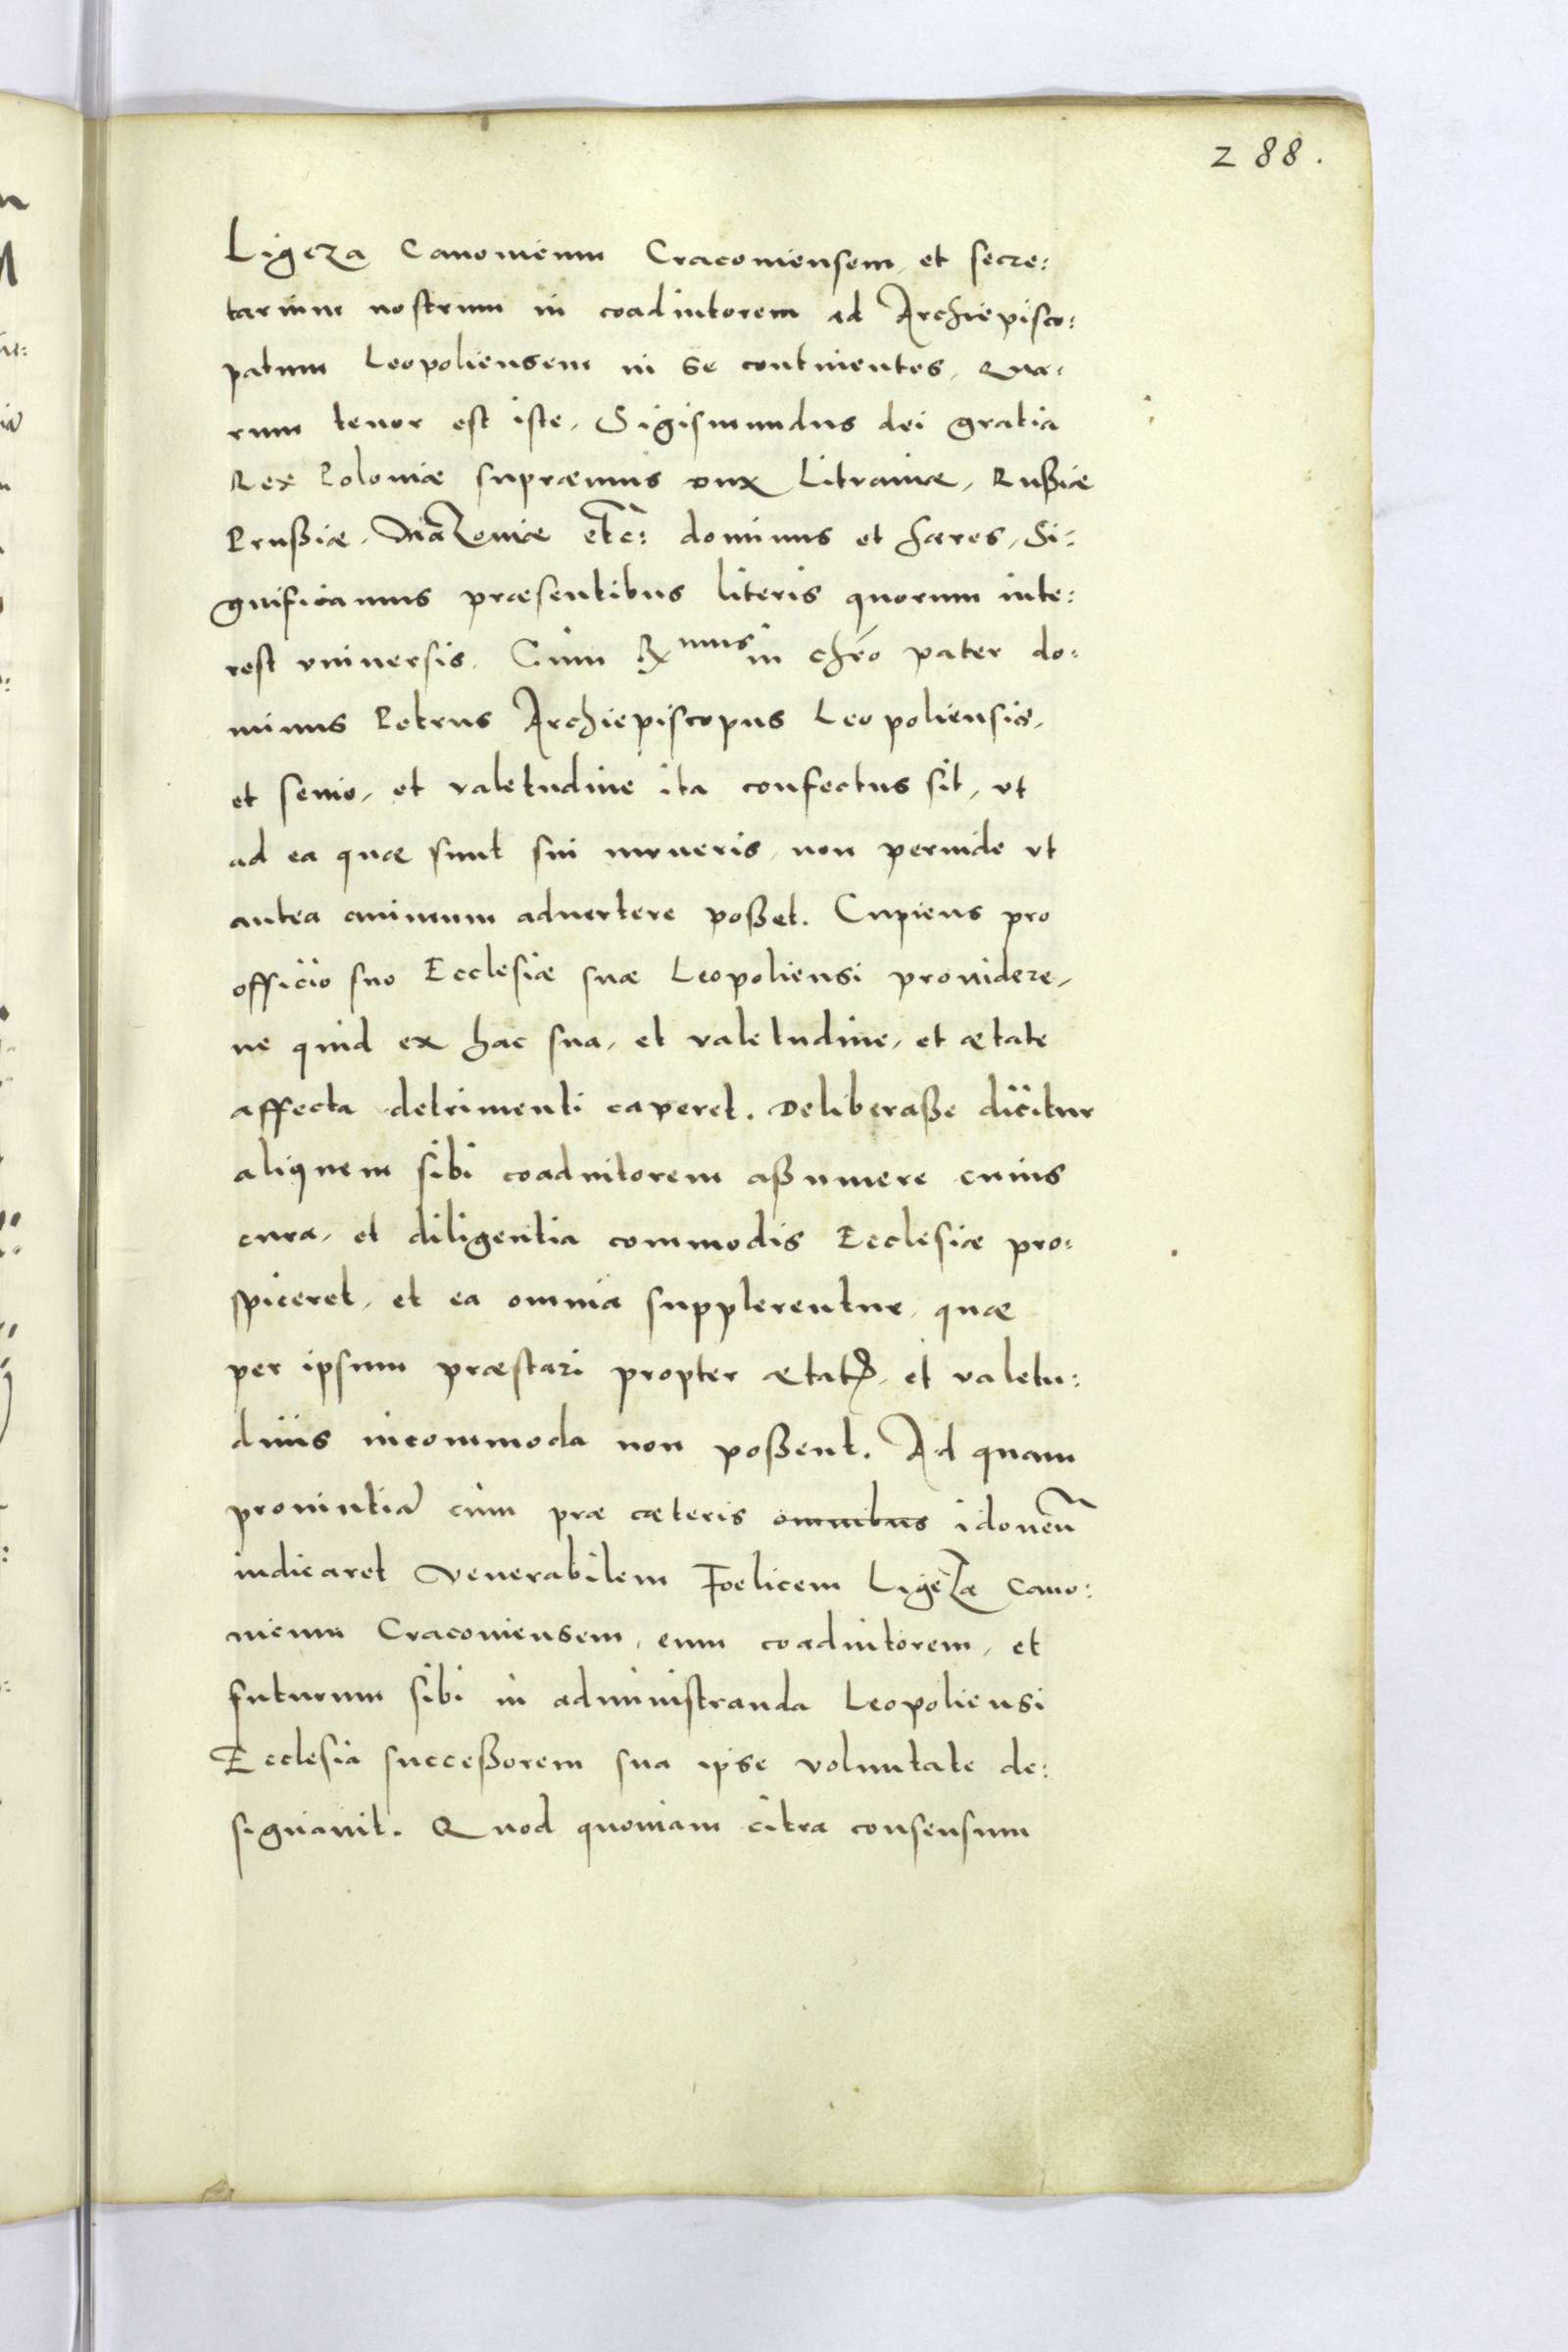 288.
Ligeza Canonicum Cracouiensem, et secre:
tarium nostrum in coadiutorem ad Archiepisco:
patum Leopoliensem in se continentes, Qua:
rum tenor est iste, Sigismundus dei gratia
Rex Poloniæ supræmus Dux Lituaniæ, Rußiæ
Prußiæ, Mazouiæ etc̃: dominus et hæres, Si:
gnificamus præsentibus literis quorum inte:
rest vniuersis. Cum Rmus in chro pater do:
minus Petrus Archiepiscopus Leopoliensis,
et senio, et valetudine ita confectus sit, vt
ad ea quæ sunt sui muneris, non perinde vt
antea animum aduertere poßet. Cupiens pro
officio suo Ecclesiæ suæ Leopoliensi prouidere,
ne quid ex hac sua, et valetudine, et ætate
affecta detrimenti caperet. Deliberaße dicitur
aliquem sibi coadiutorem aßumere cuius
cura, et diligentia commodis Ecclesiæ pro:
spiceret, et ea omnia supplerentur, quæ
per ipsum præstari propter ætatis, et valetu:
dinis incommoda non poßent. Ad quam
prouintiã cum præ cæteris omnibus idoneũ
iudicaret Venerabilem Foelicem Ligezæ Cano:
nicum Cracouiensem, eum coadiutorem, et
futurum sibi in administranda Leopoliensi
Ecclesia succeßorem sua ipse voluntate de:
signauit. Quod quoniam citra consensum